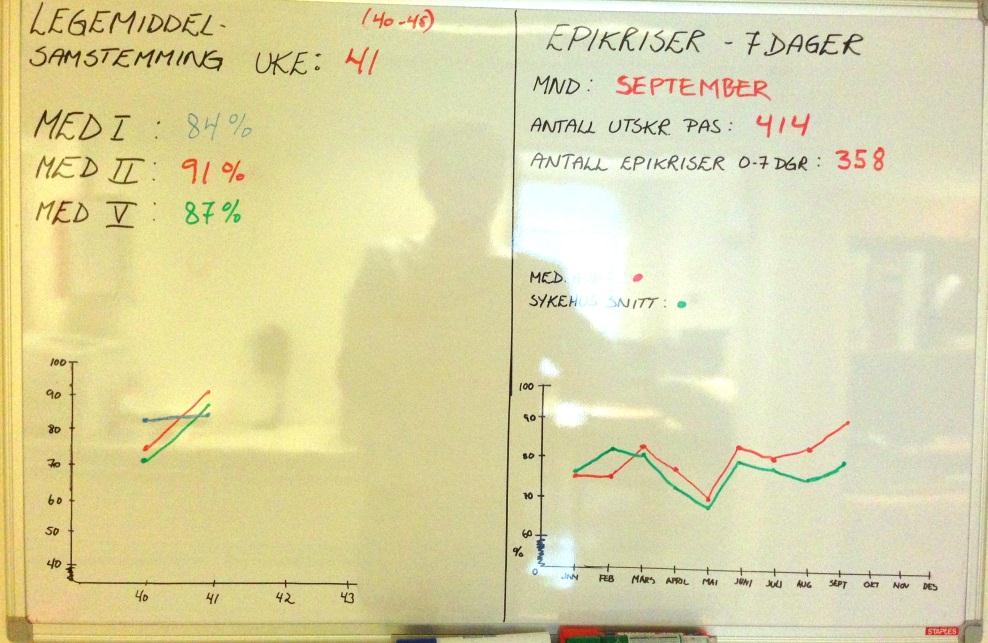 LEGEMIDDEL-
(40-45)
SAMSTEMMING UKE: 41
MED I : 84%
MED II : 91%
MED V : 87%
100
90
80
70
60
50
40
40 41 42 43
EPIKRISER - 7 DAGER
MND: SEPTEMBER
ANTALL UTSKR PAS: 414
ANTALL EPIKRISER 0-7 DGR: 358
MED.
SYKEHUS SNITT:
100
90
80
70
60
%
0
JAN FEB MARS APRIL MAI JUNI JULI AUG SEPT OKT NOV DES
STAPLES